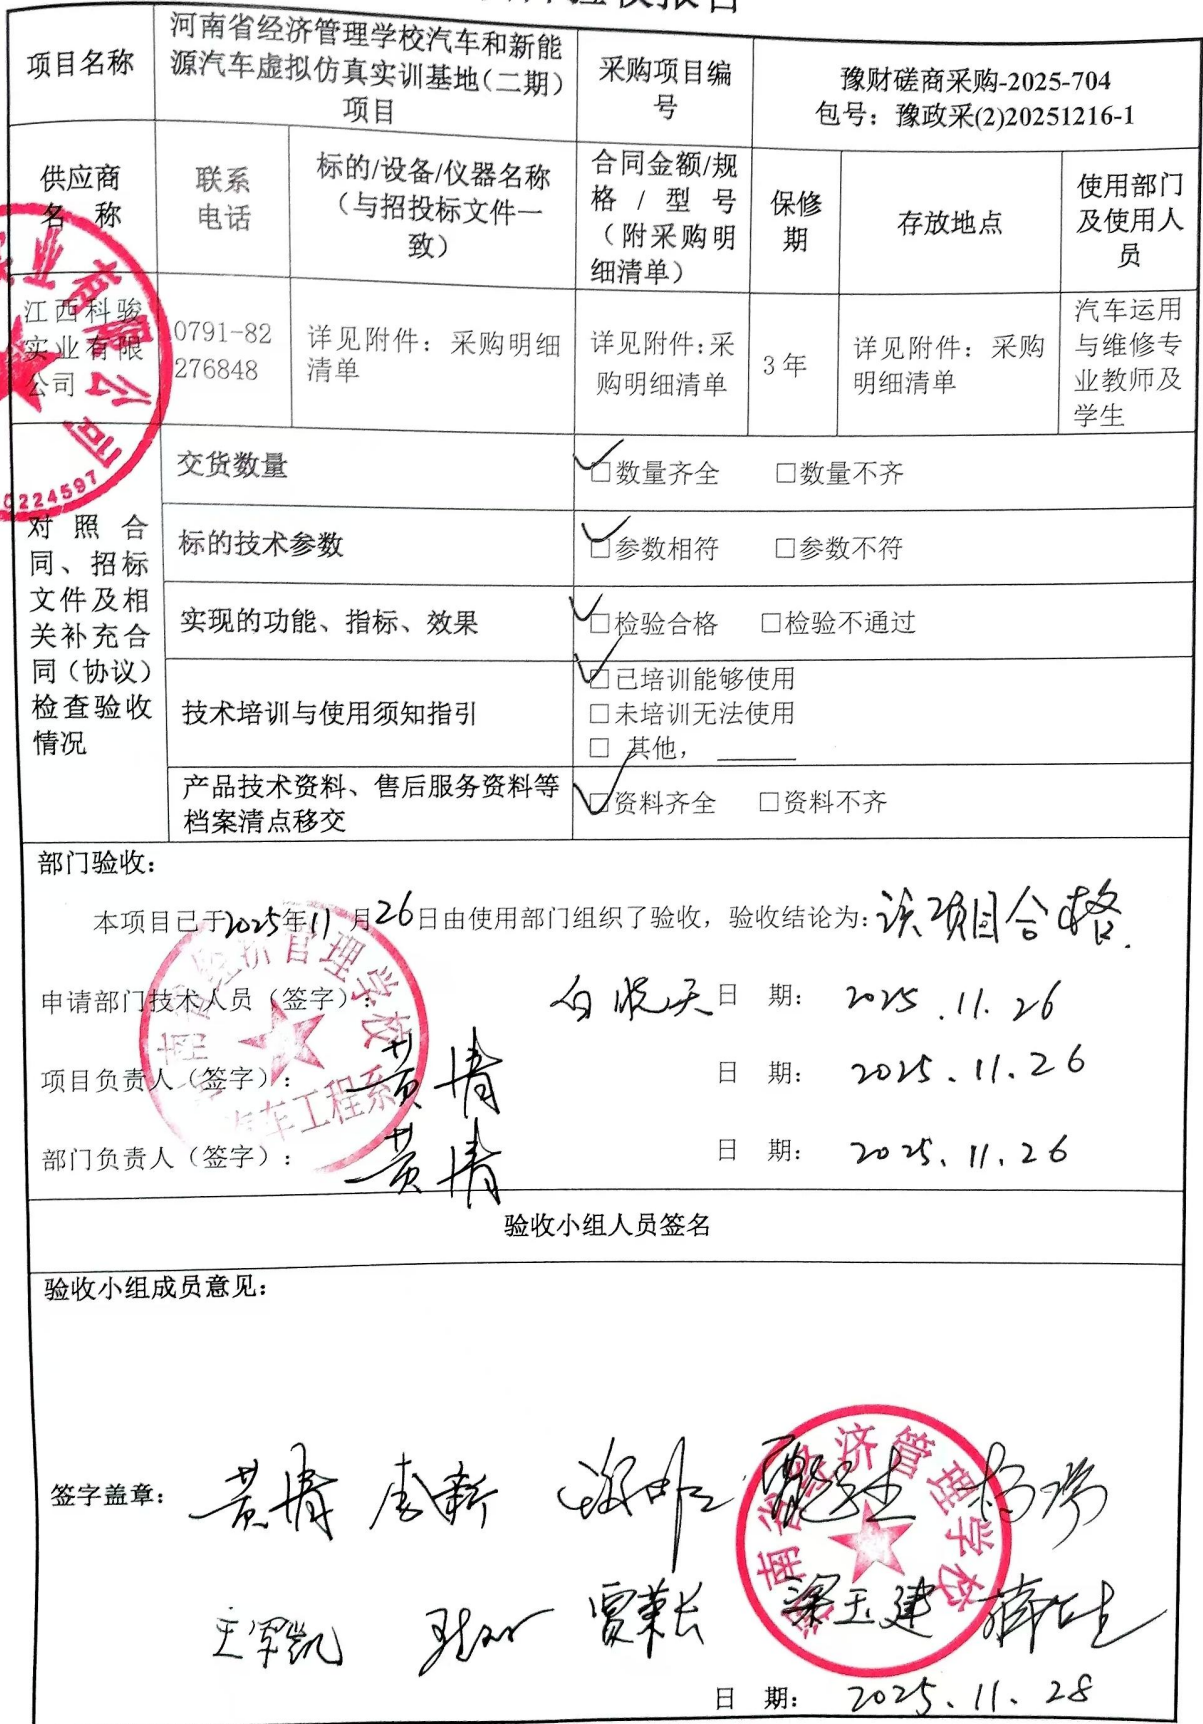 验收报告
项目名称
河南省经济管理学校汽车和新能
源汽车虚拟仿真实训基地(二期)
项目
采购项目编
号
豫财磋商采购-2025-704
包号：豫政采(2)20251216-1
供应商
名 称
联系
电话
标的/设备/仪器名称
（与招投标文件一
致）
合同金额/规
格 / 型 号
（附采购明
细清单）
保修
期
存放地点
使用部门
及使用人
员
江西科骏
实业有限
公司
0791-82
276848
详见附件：采购明细
清单
详见附件：采
购明细清单
3年
详见附件：采购
明细清单
汽车运用
与维修专
业教师及
学生
业有限公司
0224597
对 照 合
同、招标
文件及相
关补充合
同（协议）
检查验收
情况
交货数量
□数量齐全 □数量不齐
标的技术参数
□参数相符 □参数不符
实现的功能、指标、效果
□检验合格 □检验不通过
技术培训与使用须知指引
□已培训能够使用
□未培训无法使用
□ 其他，______
产品技术资料、售后服务资料等
档案清点移交
□资料齐全 □资料不齐
部门验收：
本项目已于2025年11月26日由使用部门组织了验收，验收结论为：该项目合格.
申请部门技术人员（签字）：
日 期： 2025.11.26
项目负责人（签字）： 黄靖
日 期： 2025.11.26
部门负责人（签字）： 黄靖
日 期： 2025.11.26
南省经济管理学校
汽车工程系
验收小组人员签名
验收小组成员意见：
签字盖章： 黄靖
王军凯 贾荣长 梁玉建
河南省经济管理学校
日 期： 2025.11.28